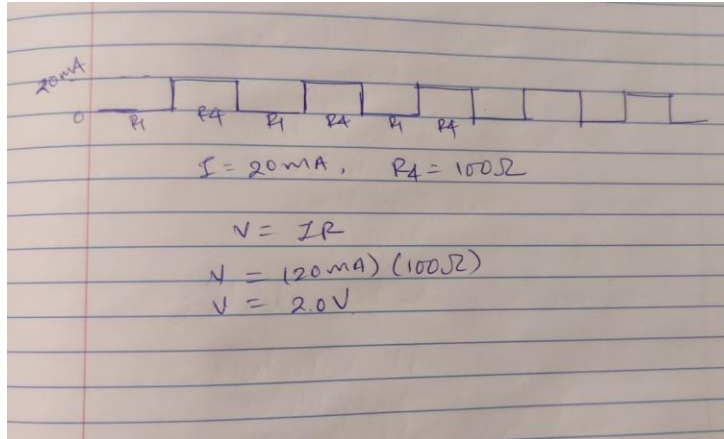 20mA
0 R1 R4 R1 R4 R1 R4
I = 20mA, R4 = 100Ω
V = IR
V = (20mA) (100Ω)
V = 2.0V